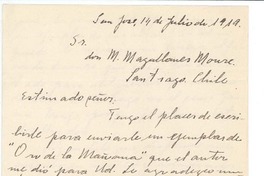 San José, 14 de Julio de 1919.
Sr.
don M. Magallanes Moure.
Santiago. Chile
Estimado señor:
Tengo el placer de escri-
birle para enviarle un ejemplar de
"Oro de la Mañana" que el autor
me dió para Ud. Le agradezco